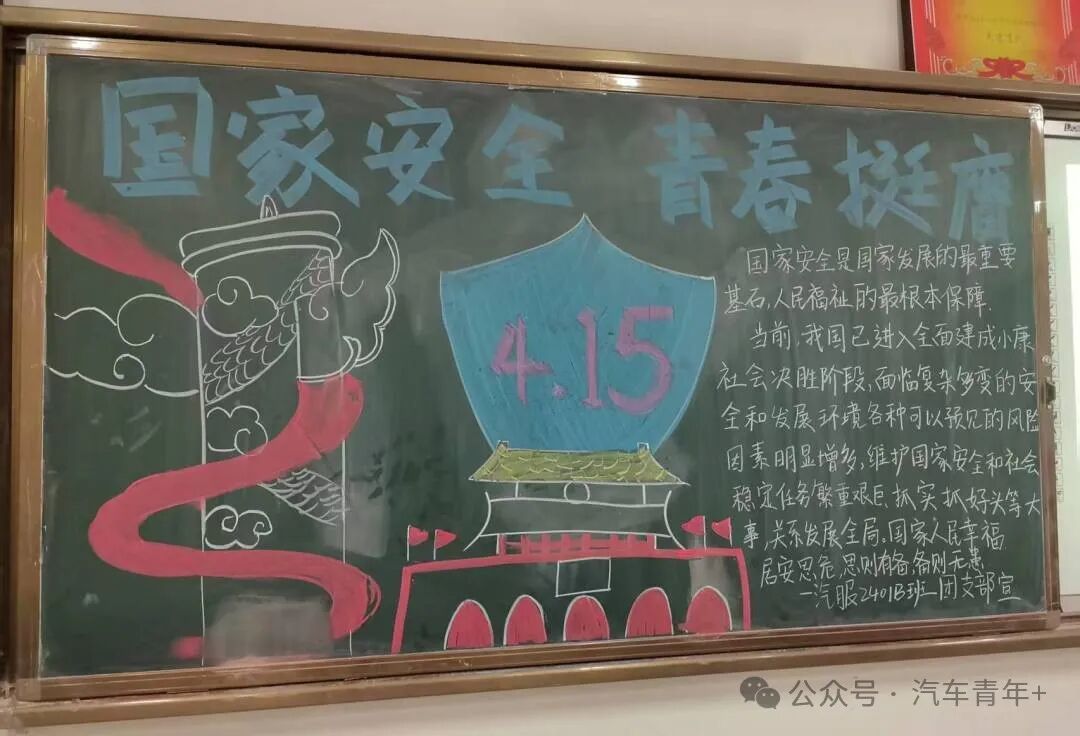 国家安全 青春挺膺
4.15
国家安全是国家发展的最重要
基石,人民福祉的最根本保障.
当前,我国已进入全面建成小康
社会决胜阶段,面临复杂多变的安
全和发展环境各种可以预见的风险
因素明显增多,维护国家安全和社会
稳定任务繁重艰巨.抓实抓好头等大
事,关系发展全局。国家人民幸福,
居安思危,思则有备,备则无患
—汽服2401B班团支部宣
公众号·汽车青年+